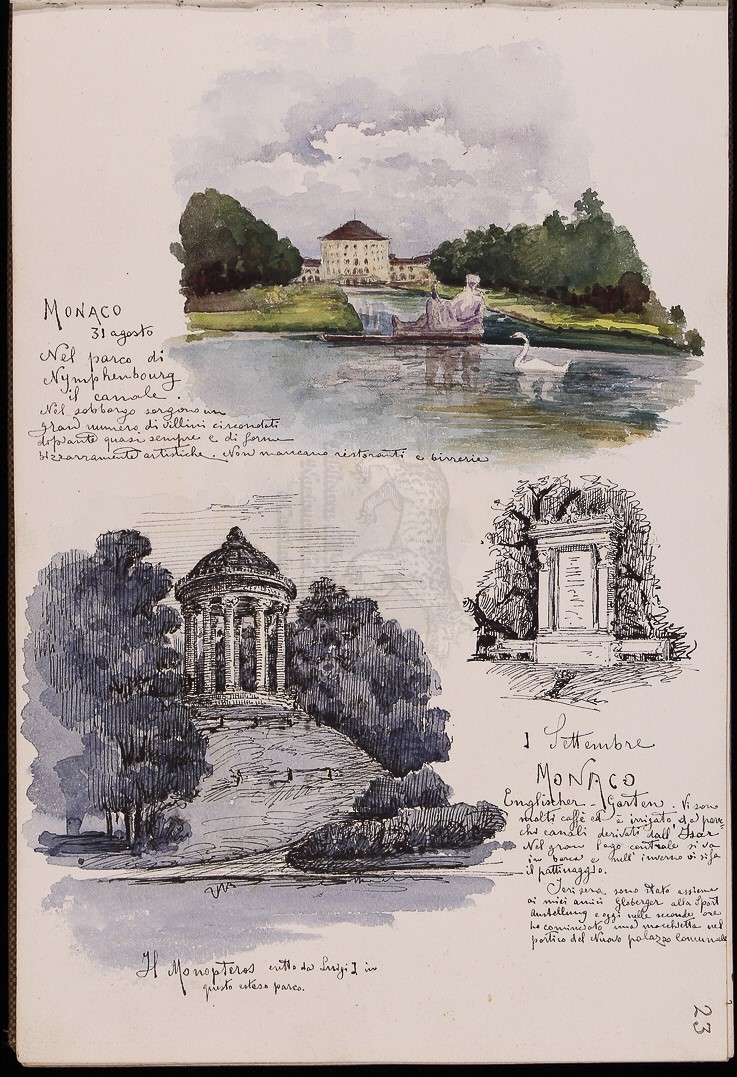 MONACO
31 agosto
Nel parco di
Nymphenbourg
il canale.
Nel sobborgo sorgono un
gran numero di villini circondati
da piante quasi sempre e di forme
bizzarramente artistiche. Non mancano ristoranti e birrerie
1 Settembre
MONACO
Englischer-Garten. Vi sono
molti caffè ed è irrigato da parec-
chi canali derivati dall'Isar
Nel gran lago centrale si va
in barca e nell'inverno vi si fa
il pattinaggio.
Ieri sera sono stato assieme
ai miei amici Globerger alla Sport
Austellung e oggi nelle seconde ore
ho cominciato una macchietta nel
portico del Nuovo palazzo Comunale
Il Monopteros eretto da Luigi I in
questo esteso parco.
23